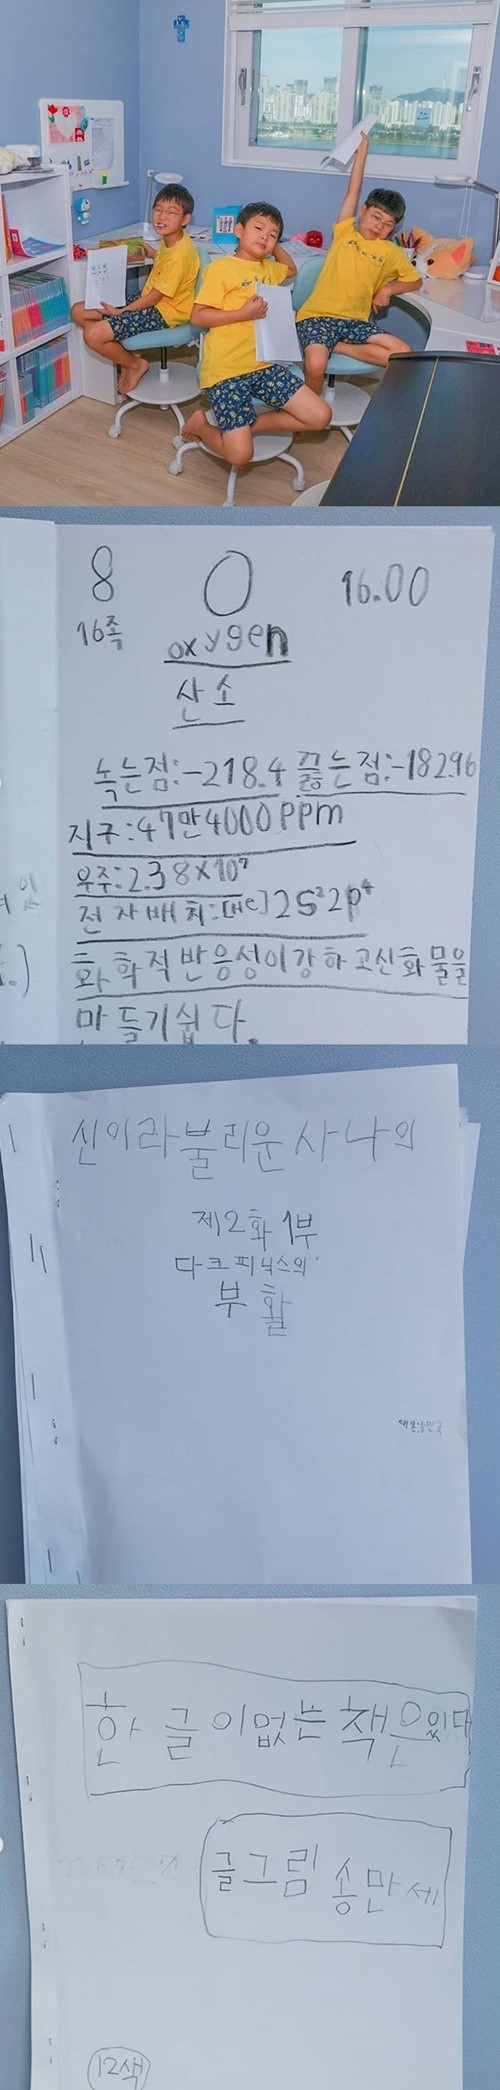 8 O 16.00
16족 oxygen
산소
녹는점:-218.4 끓는점:-182.96
지구:47만4000ppm
우주:2.38×10⁷
전자배치:[He]2S²2p⁴
화학적반응성이강하고산화물을
만들기쉽다.
신이라불리운사나의
제2화1부
다크피닉스의
부활
한글이없는책은있다
글그림 송만세
12색